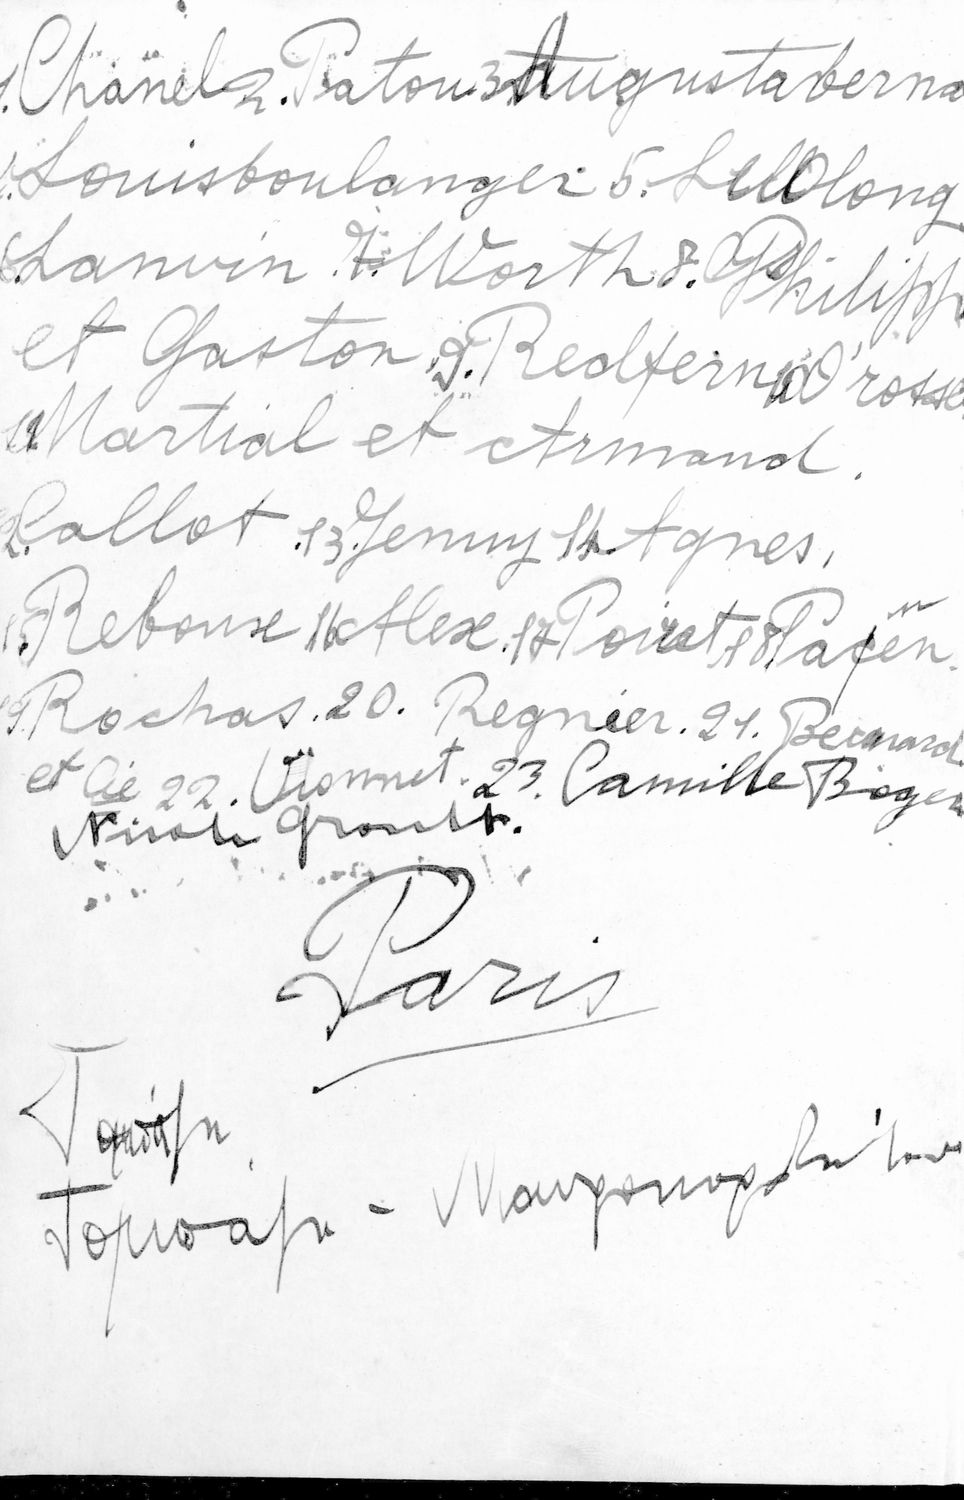 1. Chanel 2. Patou 3. Augustaberna
4. Louisboulanger 5. Lelong
6. Lanvin 7. Worth 8. Philippe
et Gaston 9. Redfern 10 D'rosse
11 Martial et Armand.
12. Callot 13. Jenny 14. Agnes,
15. Reboux 16 Alex. 17 Poiret 18 Paqën.
19. Rochas. 20. Regnier. 21. Bernard
et Cie 22. Vionnet. 23. Camille Roger
Nicole Groult.
Paris